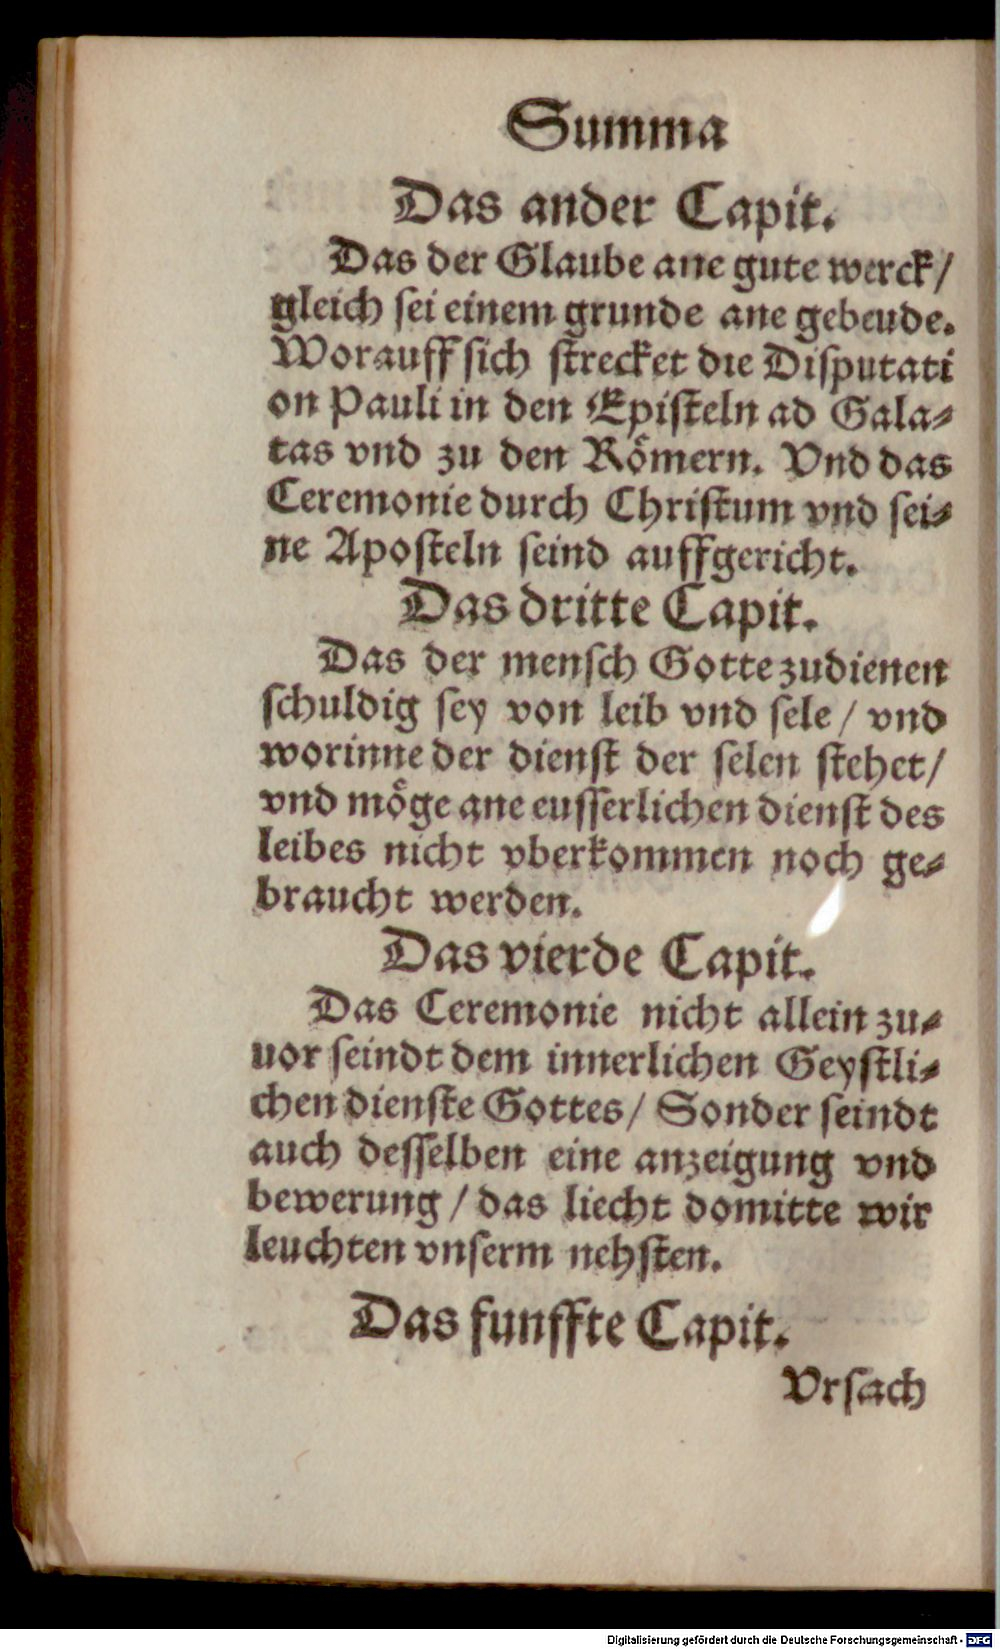 Summa
Das ander Capit.
Das der Glaube ane gute werck/
gleich sei einem grunde ane gebeude.
Worauff sich strecket die Disputati
on Pauli in den Episteln ad Gala⸗
tas vnd zu den Römern. Vnd das
Ceremonie durch Christum vnd sei⸗
ne Aposteln seind auffgericht.
Das dritte Capit.
Das der mensch Gotte zudienen
schuldig sey von leib vnd sele / vnd
worinne der dienst der selen stehet/
vnd möge ane eusserlichen dienst des
leibes nicht vberkommen noch ge⸗
braucht werden.
Das vierde Capit.
Das Ceremonie nicht allein zu⸗
uor seindt dem innerlichen Geystli⸗
chen dienste Gottes/ Sonder seindt
auch desselben eine anzeigung vnd
bewerung / das liecht domitte wir
leuchten vnserm nehsten.
Das funffte Capit.
Vrsach
Digitalisierung gefördert durch die Deutsche Forschungsgemeinschaft - DFG